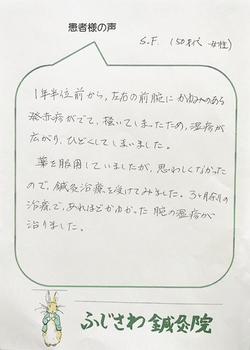 患者様の声
S.F. (50代 女性)
1年半位前から、左右の前腕にかゆみのある
発赤疹がでて、掻いてしまったため、湿疹が
広がり、ひどくしてしまいました。
薬を服用していましたが、思わしくなかった
ので、鍼灸治療を受けてみました。3ヶ月余りの
治療で、あれほどかゆかった腕の湿疹が
治りました。
ふじさわ鍼灸院